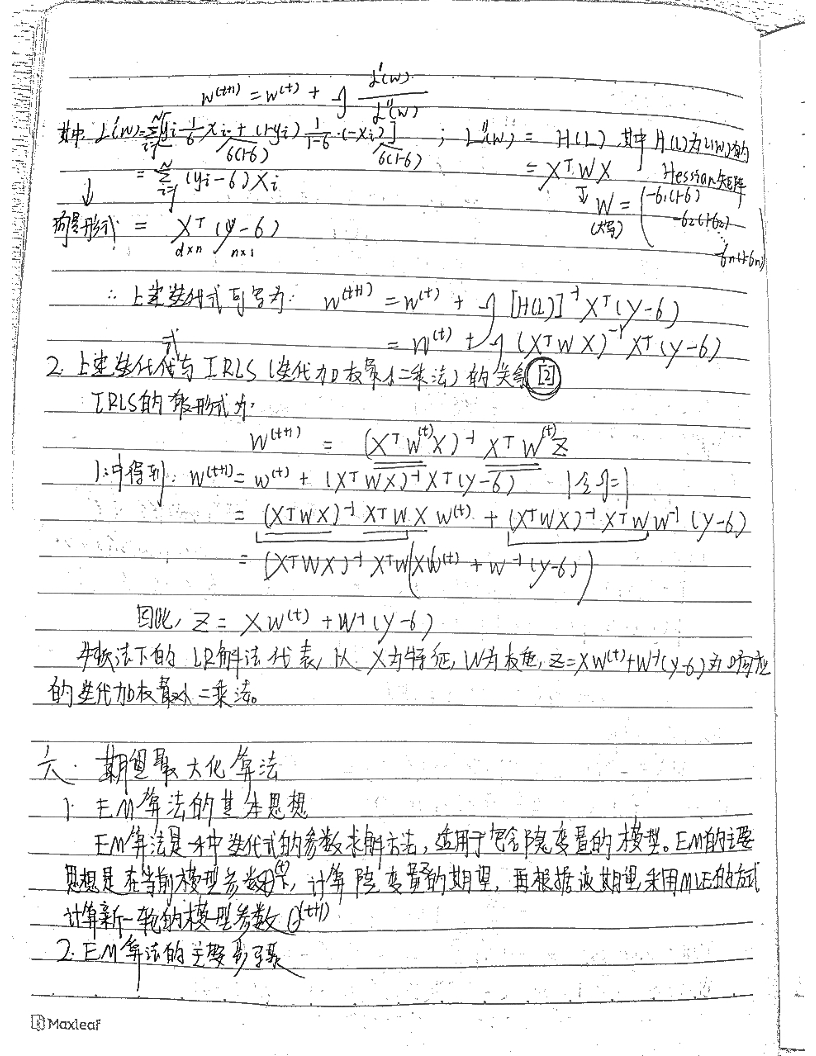 w^(t+1) = w^(t) + η L'(w) / L''(w)
其中 L'(w) = Σ_{i=1}^{N} [yi 1/6 xi + (1-yi) 1/(1-6) ·(-xi)] ; L''(w) = H(L), 其中 H(L)为L(w)的
6(1-6) 6(1-6)
= Σ_{i=1}^{N} (yi-6) Xi = X^T W X Hessian矩阵
↓ ↓ W = (-6₁(1-6₁)
(大写) -6₂(1-6₂)
-6n(1-6n))
向量形式 = X^T (y-6)
d×n n×1
∴ 上述迭代式可写为: w^(t+1) = w^(t) + η [H(L)]^-1 X^T (Y-6)
= w^(t) + η (X^T W X)^-1 X^T (Y-6)
式
2. 上述迭代与IRLS (迭代加权最小二乘法) 的关系 [2]
IRLS的一般形式为:
W^(t+1) = (X^T W^(t) X)^-1 X^T W^(t) Z
1.中得到: w^(t+1) = w^(t) + (X^T W X)^-1 X^T (Y-6) |令η=1
= (X^T W X)^-1 X^T W X w^(t) + (X^T W X)^-1 X^T W W^-1 (Y-6)
= (X^T W X)^-1 X^T W (X W^(t) + W^-1 (y-6))
因此, Z = X W^(t) + W^-1 (Y-6)
牛顿法下的LR解法代表, 以X为特征, W为权重, Z=XW^(t)+W^-1(Y-6)为响应
的迭代加权最小二乘法。
六. 期望最大化算法
1. EM算法的基本思想
EM算法是一种迭代式的参数求解方法, 适用于包含隐变量的模型。EM的主要
思想是在当前模型参数θ^(t)下, 计算隐变量的期望, 再根据该期望, 采用MLE的方式
计算新一轮的模型参数θ^(t+1)
2. EM算法的主要步骤
Maxleaf